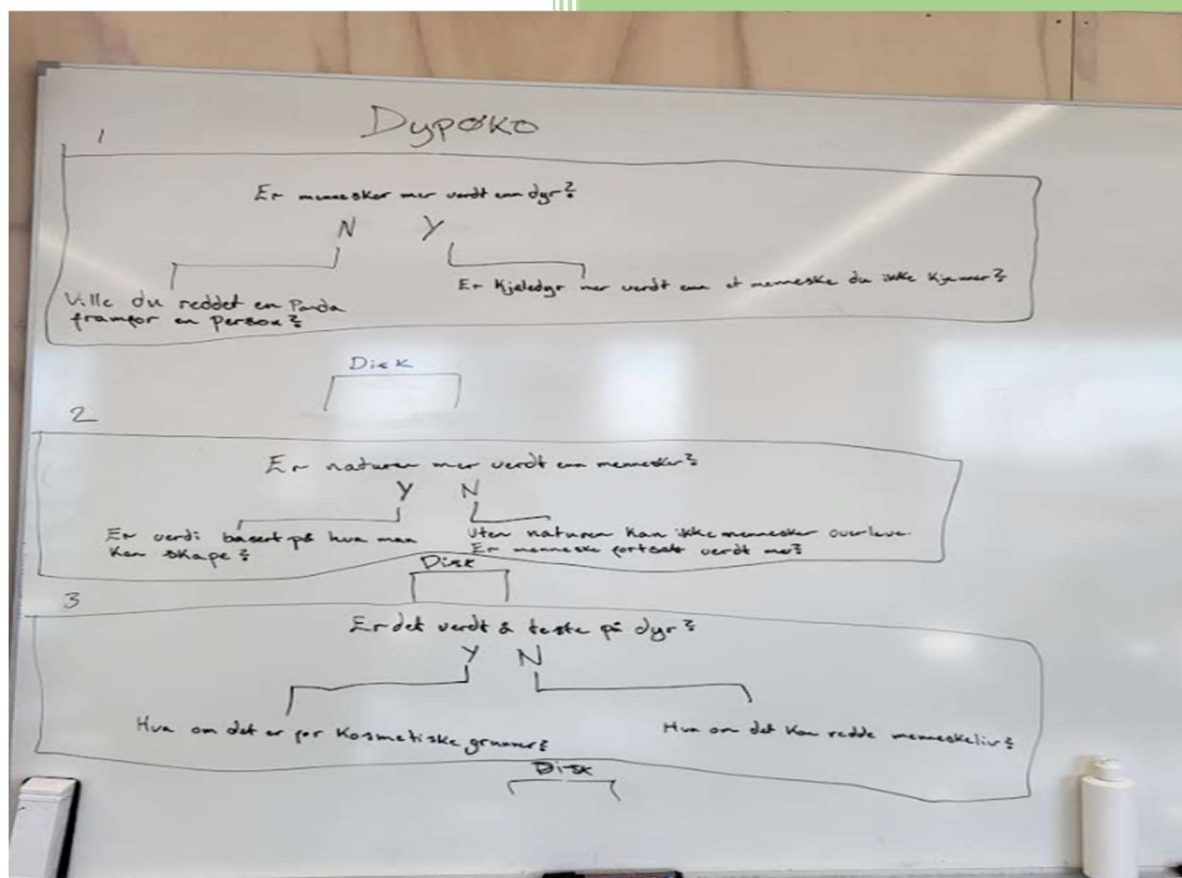 1
Dypøko
Er mennesker mer verdt enn dyr?
N Y
Ville du reddet en Panda
framfor en person?
Er Kjeledyr mer verdt enn et menneske du ikke Kjenner?
Disk
2
Er naturen mer verdt enn mennesker?
Y N
Er verdi basert på hva man
Kan skape?
Uten naturen kan ikke mennesker overleve.
Er menneske fortsatt verdt mer?
Disk
3
Er det verdt å teste på dyr?
Y N
Hva om det er for Kosmetiske grunner?
Hva om det kan redde menneskeliv?
Disk